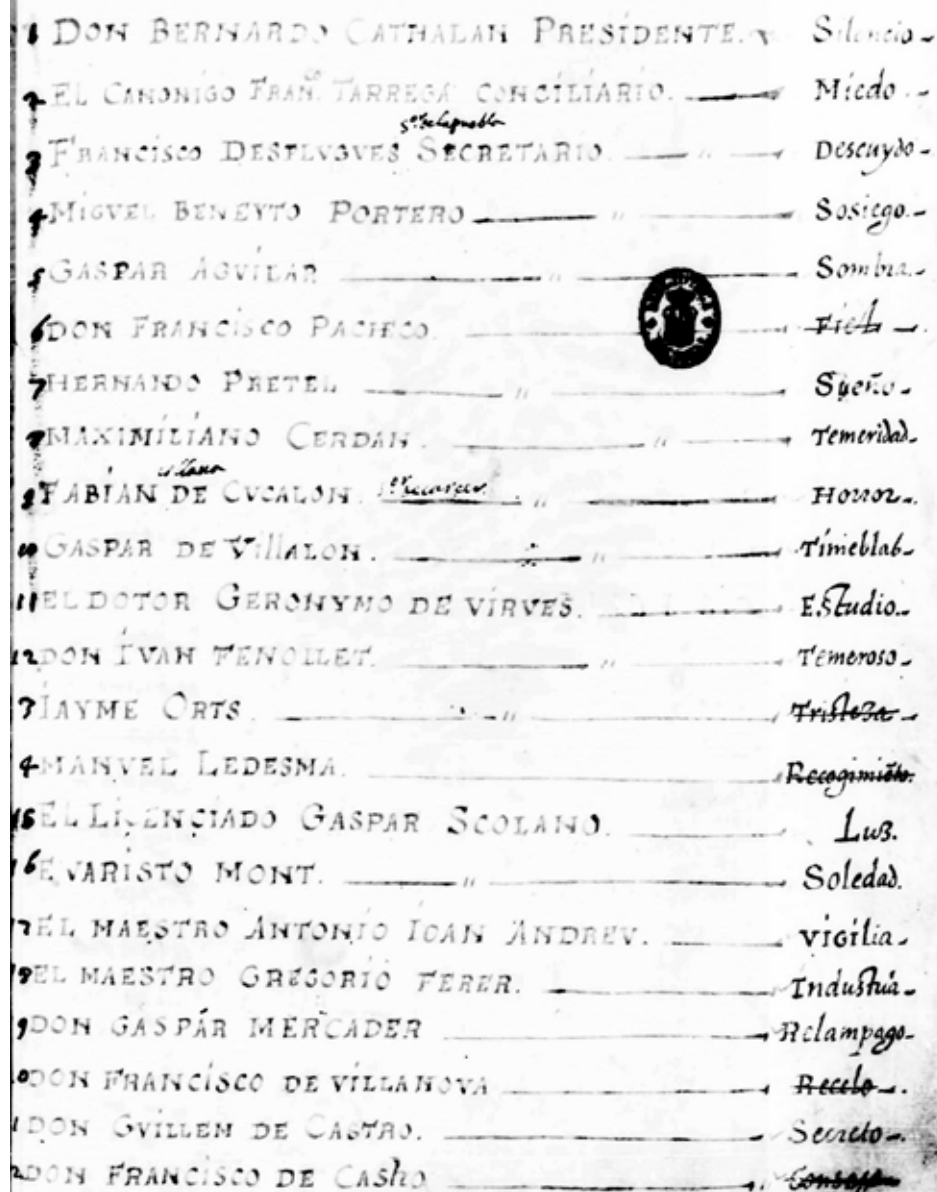 1 DON BERNARDO CATHALAN PRESIDENTE. Silencio
2 EL CANONIGO FRAN.co TARREGA CONCILIARIO. Miedo
s.or de la puebla
3 FRANCISCO DESPLVGVES SECRETARIO. Descuydo
4 MIGVEL BENEYTO PORTERO Sosiego
5 GASPAR AGVILAR Sombra
6 DON FRANCISCO PACHECO. Fiel
7 HERNANDO PRETEL Sueño
8 MAXIMILIANO CERDAN. Temeridad
9 FABIAN DE CVCALON. Horror
10 GASPAR DE VillALON. Tinieblas
11 EL DOTOR GERONYMO DE VIRVES. Estudio
12 DON IVAN FENOLLET. Temeroso
3 IAYME ORTS Tristeza
4 MANVEL LEDESMA. Recogimiēto.
15 EL LICENCIADO GASPAR SCOLANO. Luz.
16 EVARISTO MONT. Soledad.
7 EL MAESTRO ANTONIO IOAN ANDREV. vigilia
8 EL MAESTRO GREGORIO FERER. Industria
9 DON GASPAR MERCADER Relampago
0 DON FRANCISCO DE VILLANOVA Recelo
1 DON GVILLEM DE CASTRO. Secreto
2 DON FRANCISCO DE CAStro